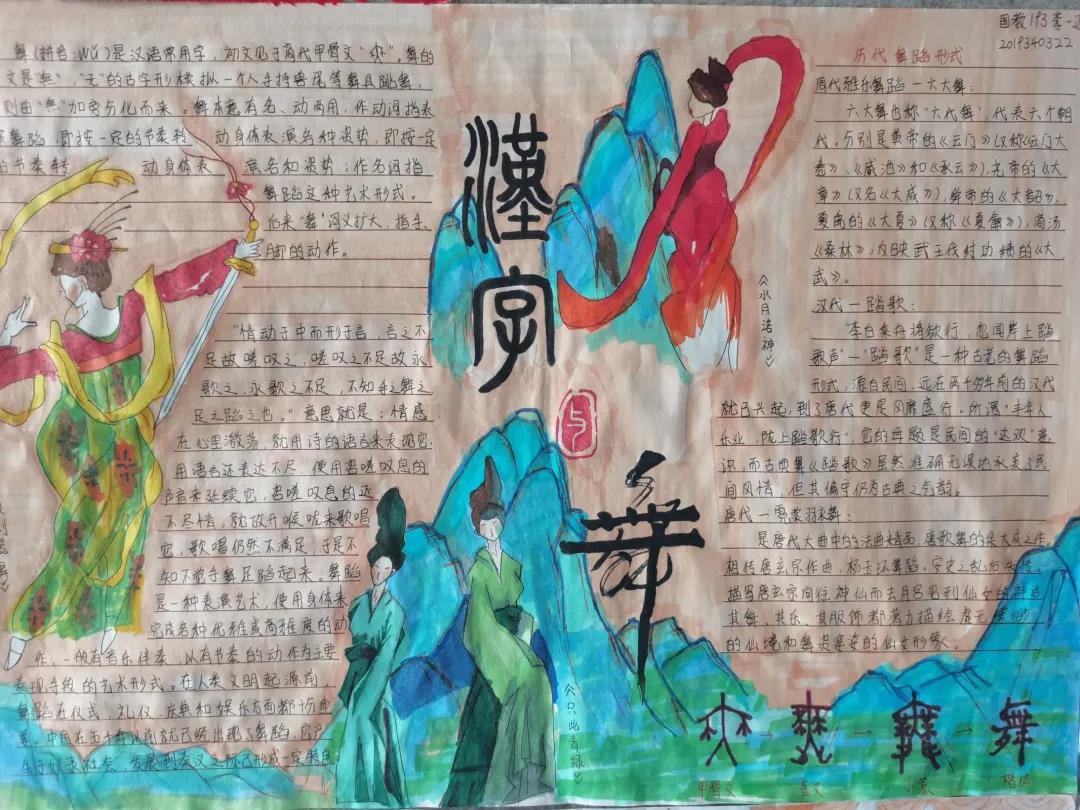 国教193李一
2019340322
舞(拼音:wǔ)是汉语常用字，初文见于商代甲骨文"". 舞的
文是"無". "无"的古字形模拟一个人手持兽尾等舞具跳舞，
则由"無"加旁分化而来。舞本意有名、动两用，作动词指表
舞蹈，即按一定的节奏转 动身体表演各种姿势，即按一定
的节奏转 动身体表 演各和姿势；作名词指
舞蹈这种艺术形式。
后来"舞"词义扩大，指手、
脚的动作。
"情动于中而形于言，言之不
足故嗟叹之，嗟叹之不足故永
歌之，永歌之不足，不知手之舞之
足之蹈之也。"意思就是：情感
在心里激荡，就用诗的语言来表现它，
用语言还表达不尽，使用咨嗟叹息的
声音来延续它，咨嗟叹息的还
不尽情，就放开喉咙来歌唱
它，歌唱仍然不满足，于是不
知不觉手舞足蹈起来。舞蹈
是一种表演艺术，使用身体来
完成各种优雅或高难度的动
作，一般有音乐伴奏，以有节奏的动作为主要
表现手段的艺术形式。在人类文明起源前，
舞蹈在仪式，礼仪，庆典和娱乐方面都十分重
要。中国在五千年以前就已经出现了舞蹈，它产
生于奴隶社会，发展到秦汉之际已形成一定特色
漢
字
与
舞
《水月洛神》
《只此青绿》
历代舞蹈形式
周代雅乐舞蹈—六大舞：
六大舞也称"六代舞"，代表六个朝
代，分别是黄帝的《云门》（又称《云门大
卷》、《咸池》和《承云》），尧帝的《大
章》（又名《大咸》），舜帝的《大韶》，
夏禹的《大夏》（又称《夏籥》），商汤
《桑林》，以及武王伐纣功绩的《大
武》。
汉代—踏歌：
"李白乘舟将欲行，忽闻岸上踏
歌声"—"踏歌"是一种古老的舞蹈
形式，源自民间，远在两千多年前的汉代
就已兴起，到了唐代更是风靡盛行。所谓"丰年人
乐业，陇上踏歌行"，它的母题是民间的"达欢"意
识，而古典舞《踏歌》虽然准确无误地承袭了民
间风情，但其偏守仍为古典之气韵。
唐代—霓裳羽衣舞：
是唐代大曲中的法曲精品，唐歌舞的集大成之作，
相传唐玄宗作曲，杨玉环舞蹈。安史之乱后失传。
描写唐玄宗向往神仙而去月宫见到仙女的神话
其舞、其乐、其服饰都着力描绘虚无缥缈
的仙境和舞姿婆娑的仙女形象。
舞
甲骨文 金文 小篆 楷体